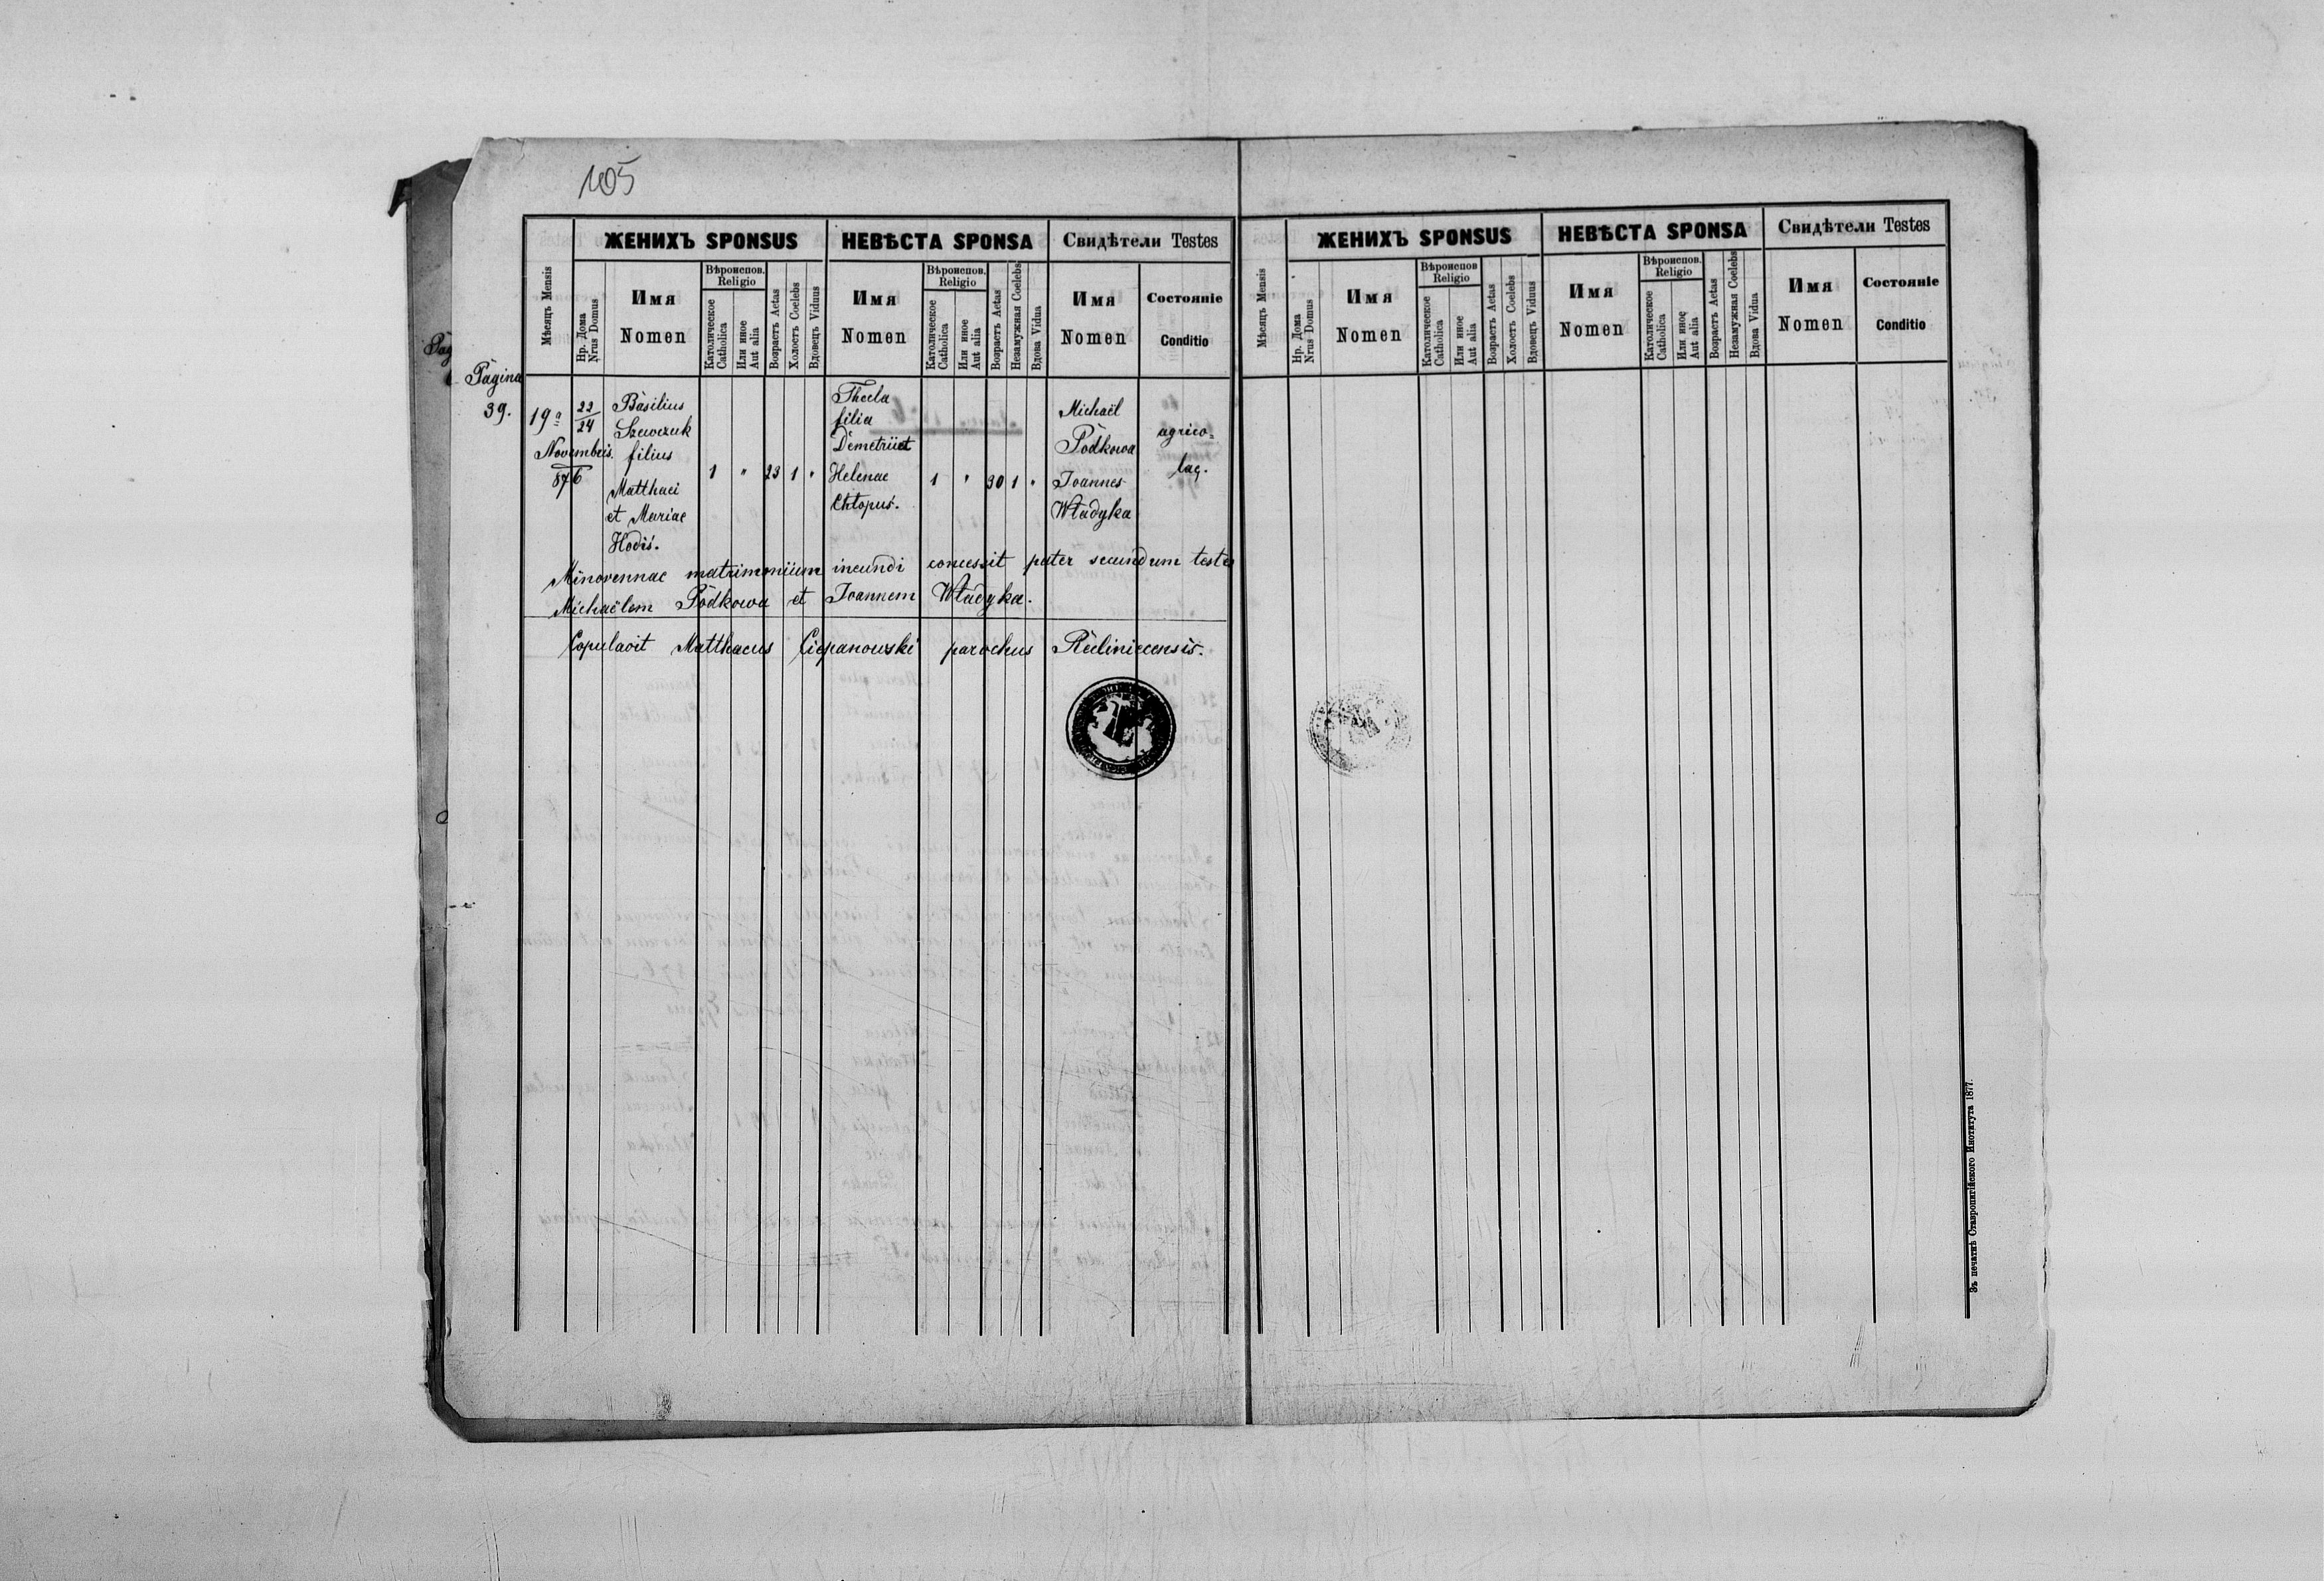 105
ЖЕНИХЪ SPONSUS НЕВѢСТА SPONSA Свидѣтели Testes
Мѣсяцъ Mensis
Нр. Дома Nrus Domus
Имя
Nomen
Вѣроиспов. Religio
Католическое Catholica
Или иное Aut alia
Возрастъ Aetas
Холостъ Coelebs
Вдовецъ Viduus
Имя
Nomen
Вѣроиспов. Religio
Католическое Catholica
Или иное Aut alia
Возрастъ Aetas
Незамужная Coelebs
Вдова Vidua
Имя
Nomen
Состояніе
Conditio
Pagina
39.
19a
Novembris.
876
22/24
Basilius
Szewczuk
filius
Matthaei
et Mariae
Hodiś.
1 " 23 1 "
Thecla
filia
Demetrii et
Helenae
Chłopuś.
1 " 30 1 "
Michaël
Podkowa
Joannes
Władyka
agrico=
lae.
Minorennae matrimonium ineundi concessit pater secundum testes
Michaëlem Podkowa et Joannem Władyka.
Copulavit Matthaeus Ciepanowski parochus Rekliniecensis.
ЖЕНИХЪ SPONSUS НЕВѢСТА SPONSA Свидѣтели Testes
Мѣсяцъ Mensis
Нр. Дома Nrus Domus
Имя
Nomen
Вѣроиспов Religio
Католическое Catholica
Или иное Aut alia
Возрастъ Aetas
Холостъ Coelebs
Вдовецъ Viduus
Имя
Nomen
Вѣроиспов. Religio
Католическое Catholica
Или иное Aut alia
Возрастъ Aetas
Незамужная Coelebs
Вдова Vidua
Имя
Nomen
Состояніе
Conditio
Зъ печатнѣ Ставропигійского Института 1877.